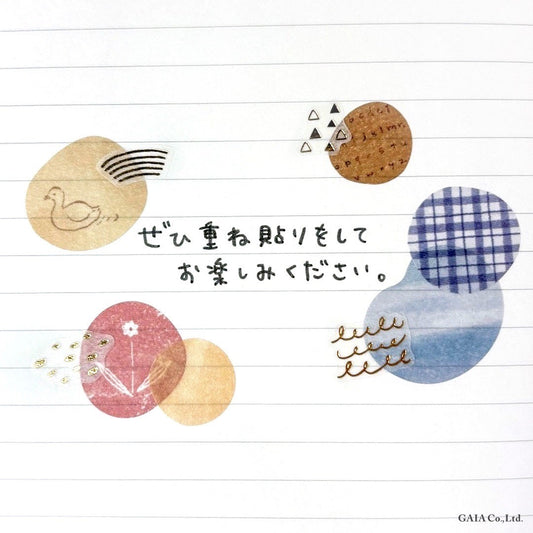 ぜひ重ね貼りをして
お楽しみください。
GAIA Co.,Ltd.